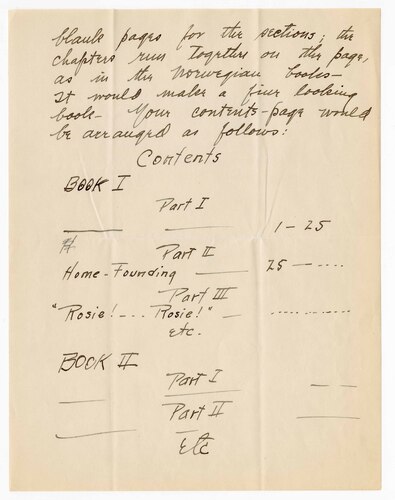 blank pages for the sections; the
chapters run together on the page,
as in the Norwegian books—
It would make a finer looking
book— Your contents-page would
be arranged as follows:
Contents
BOOK I
Part I
1-25
Part II
Home-Founding 25 -....
Part III
"Rosie!... Rosie!" — ............
etc.
BOOK II
Part I
Part II
Etc